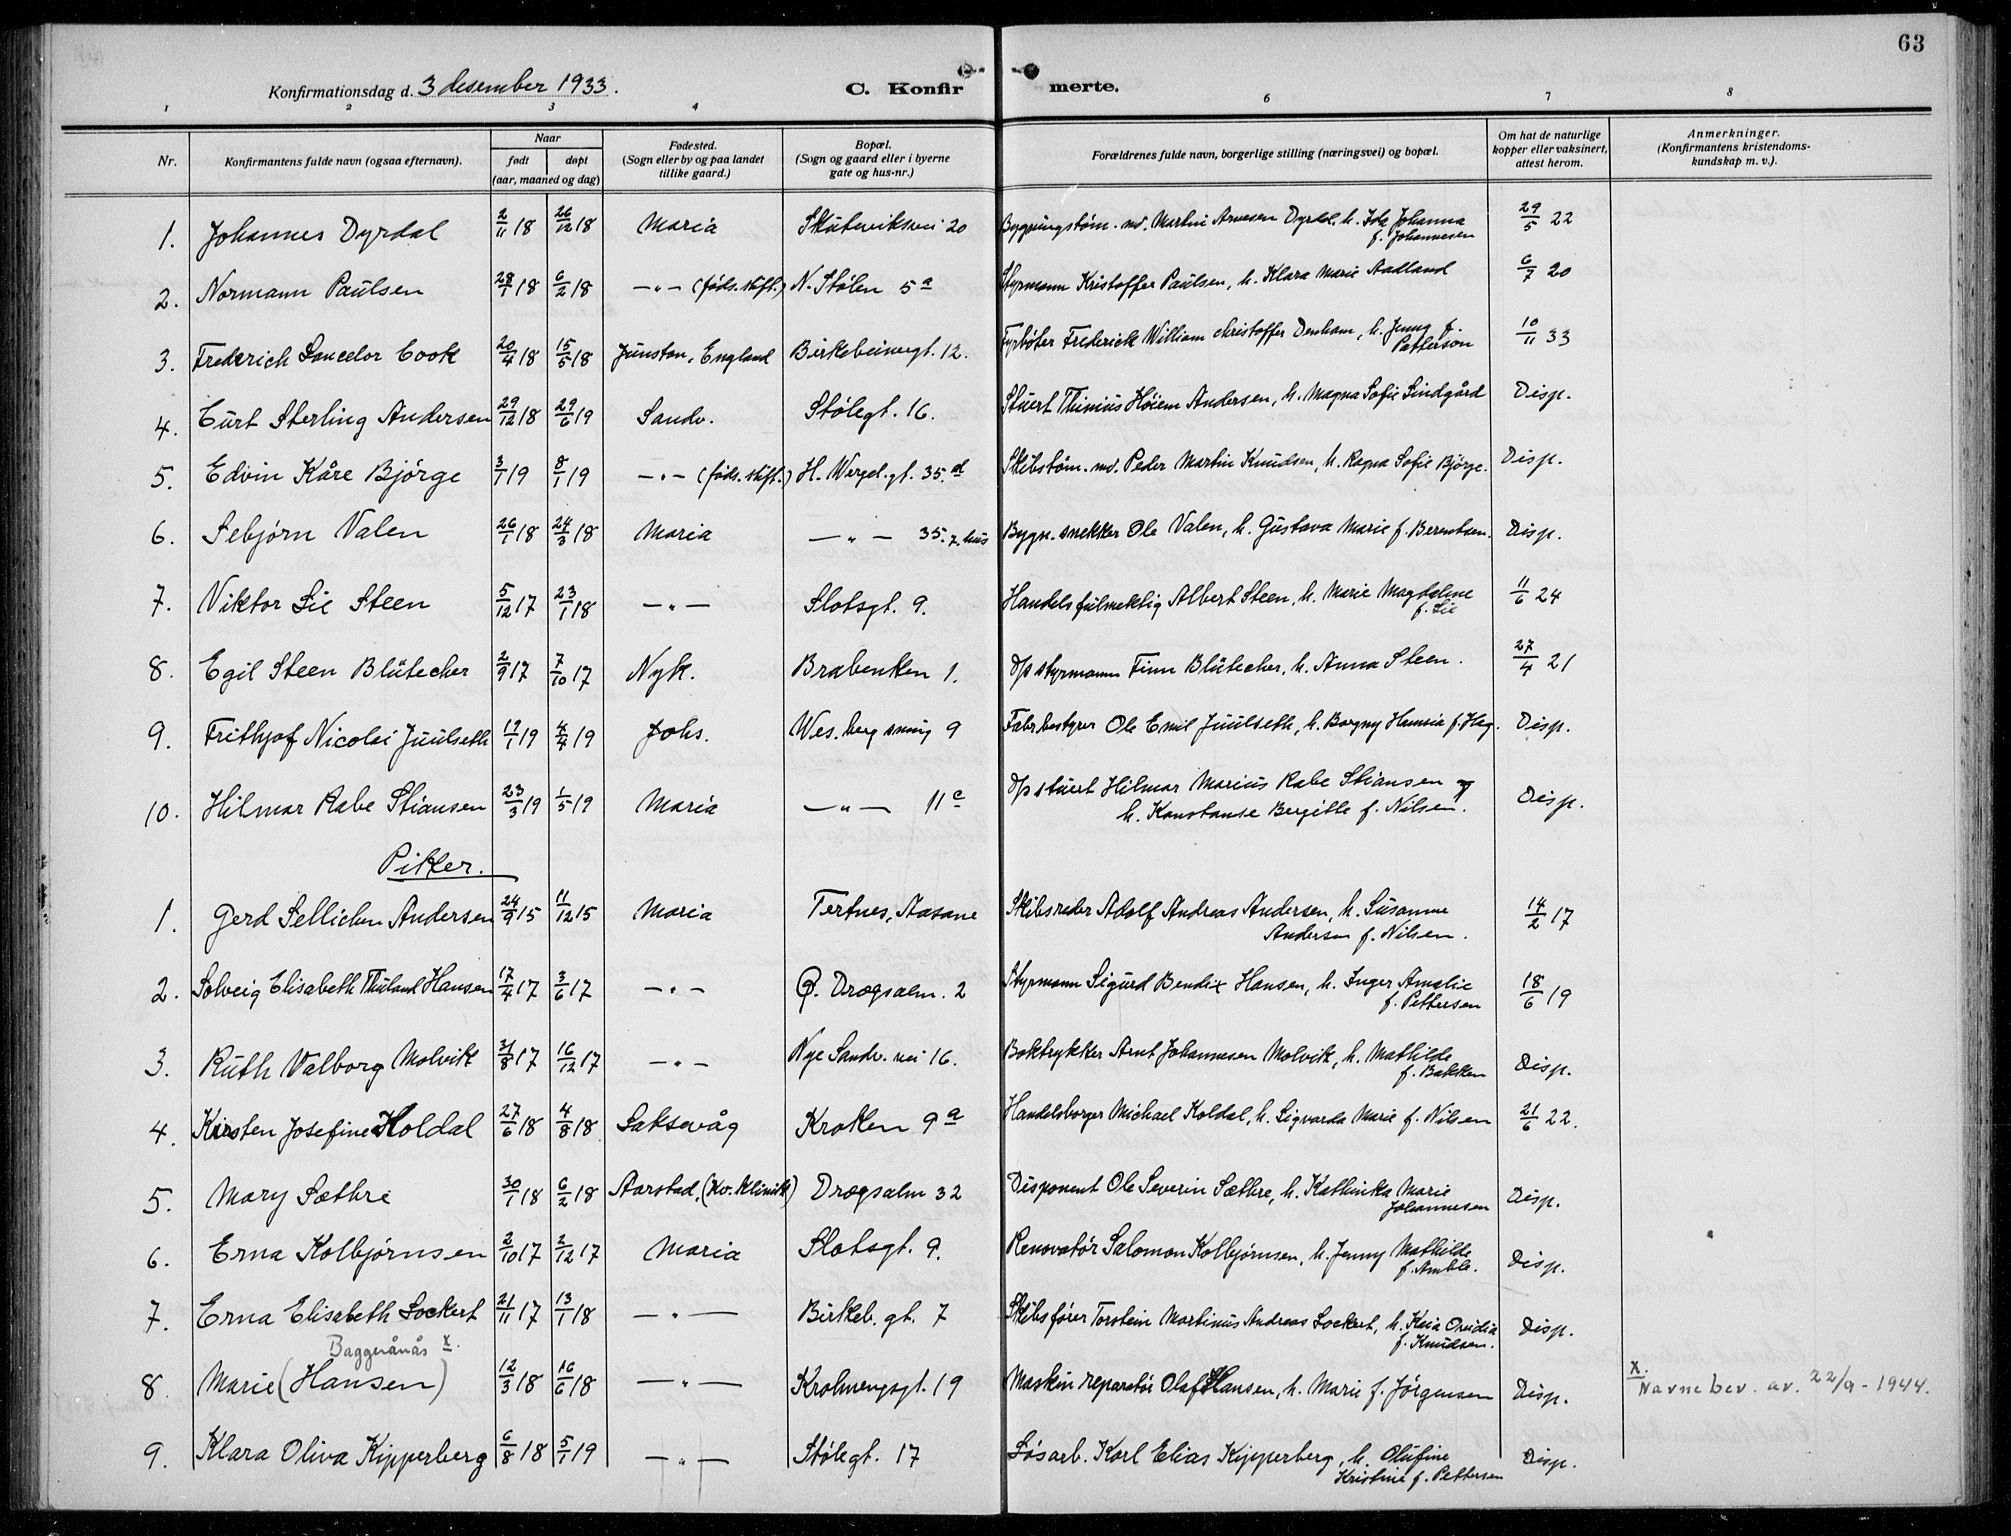 63
Konfirmationsdag d. 3 desember 1933.
C. Konfirmerte.
1 2 3 4 6 7 8
Nr.
Konfirmantens fulde navn (ogsaa efternavn).
Naar
født døpt
(aar, maaned og dag)
Fødested.
(Sogn eller by og paa landet
tillike gaard.)
Bopæl.
(Sogn og gaard eller i byerne
gate og hus-nr.)
Forældrenes fulde navn, borgerlige stilling (næringsvei) og bopæl.
Om hat de naturlige
kopper eller vaksinert,
attest herom.
Anmerkninger.
(Konfirmantens kristendoms-
kundskap m. v.).
1. Johannes Dyrdal 2/11 18 26/12 18 Maria Skuteviksvei 20 Bygningstøm. md. Martin Arnesen Dyrdal, h. Ida Johanna 29/5 22
f. Johannesen
2. Normann Paulsen 28/1 18 6/2 18 —"— (føds.stift.) N. Stølen 5a Styrmann Kristoffer Paulsen, h. Klara Marie Aadland 6/7 20
3. Frederich Lancelor Cook 20/4 18 15/5 18 Junston, England Birkebeinergt. 12. Fyrbøter Frederick William Christoffer Denham, h. Jenny f. 10/11 33
Petterson
4. Curt Sterling Andersen 29/12 18 29/6 19 Sandv. Stølegt. 16. Stuert Thinius Høiem Andersen, h. Magna Sofie Lindgård Disp.
5. Edvin Kåre Bjørge 3/1 19 8/1 19 —"— (føds. stift.) H. Wergel. gt. 35.d Skibstøm. md. Peder Martin Knudsen, h. Ragna Sofie Bjørge. Disp.
6. Sebjørn Valen 26/1 18 24/3 18 Maria —"— 35. 7. hus Bygn. snekker Ole Valen, h. Gustava Marie f. Berentsen. Disp.
7. Viktor Lie Steen 5/12 17 23/1 18 —"— Slotsgt. 9. Handelsfulmektig Albert Steen, h. Marie Magdalene 11/6 24
f. Lie
8. Egil Steen Blütecher 2/9 17 7/10 17 Nyk. Brabenken 1. D/s styrmann Finn Blütecher, h. Anna Steen. 27/4 21
9. Frithjof Nicolai Juulseth 12/1 19 4/4 19 Johs. Wes. berg smug 9 Fabr. bestyrer Ole Emil Juulseth, h. Borgny Hansia f. Hag. Disp.
10. Hilmar Rabe Stiansen 23/3 19 1/5 19 Maria —"— 11c D/s stuert Hilmar Marius Rabe Stiansen og
h. Konstanse Bergitte f. Nilsen. Disp.
Piker.
1. Gerd Sellichen Andersen 24/9 15 11/12 15 Maria Tertnes, Aasane Skibsreder Adolf Andreas Andersen, h. Susanne 14/2 17
Andersen f. Nilsen.
2. Solveig Elisabeth Thuland Hansen 17/4 17 3/6 17 —"— Ø. Dregsalm. 2 Styrmann Sigurd Bendix Hansen, h. Inger Amalie 18/6 19
f. Pettersen
3. Ruth Valborg Molvik 31/8 17 16/12 17 —"— Nye Sandv. vei 16. Boktrykker Arnt Johannesen Molvik, h. Mathilde Disp.
f. Bakken
4. Kirsten Josefine Koldal 27/6 18 4/8 18 Laksevåg Kroken 9a Handelsborger Michael Koldal, h. Sigvarda Marie f. Nilsen 21/6 22.
5. Mary Sæthre 30/1 18 6/2 18 Aarstad, (Kv. klinikk) Dregsalm 32 Disponent Ole Severin Sæthre, h. Kathinka Marie Disp.
Johannesen
6. Erna Kolbjørnsen 2/10 17 2/12 17 Maria Slotsgt. 9. Renovatør Salomon Kolbjørnsen, h. Jenny Mathilde Disp.
f. Amble.
7. Erna Elisabeth Lockert 21/11 17 13/1 18 —"— Birkeb. gt. 7 Skibsfører Torstein Martinus Andreas Lockert, h. Kaia Ovidia Disp.
f. Knudsen.
Baggerånås x.
8. Marie (Hansen) 12/3 18 16/6 18 —"— Krohnengsgt. 19 Maskin reparatør Olaf Hansen, h. Marie f. Jørgensen Disp. x. Navnebev. av. 22/9 - 1944.
9. Klara Oliva Kipperberg 6/8 18 5/1 19 —"— Stølegt. 17 Løsarb. Karl Elias Kipperberg, h. Olufine Disp.
Kristine f. Pettersen